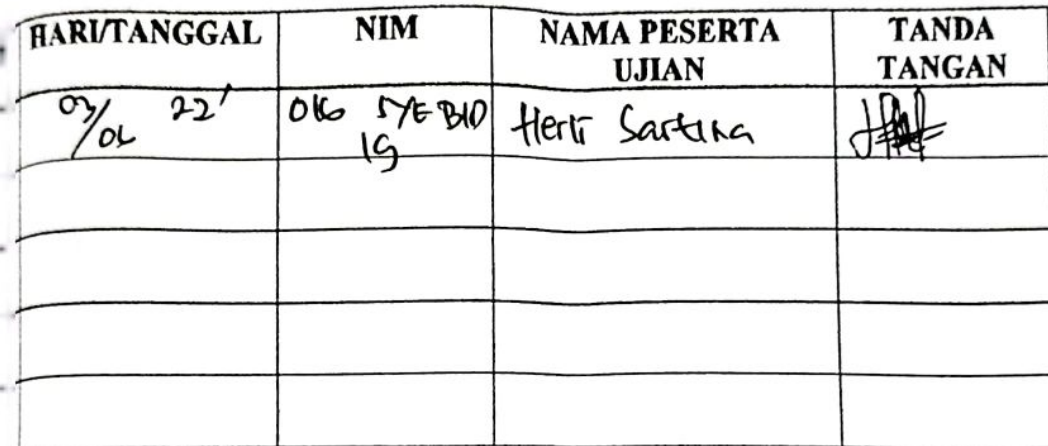 HARI/TANGGAL NIM NAMA PESERTA UJIAN TANDA TANGAN
03/06 22' 016 SYE BID 19 Herli Sartina